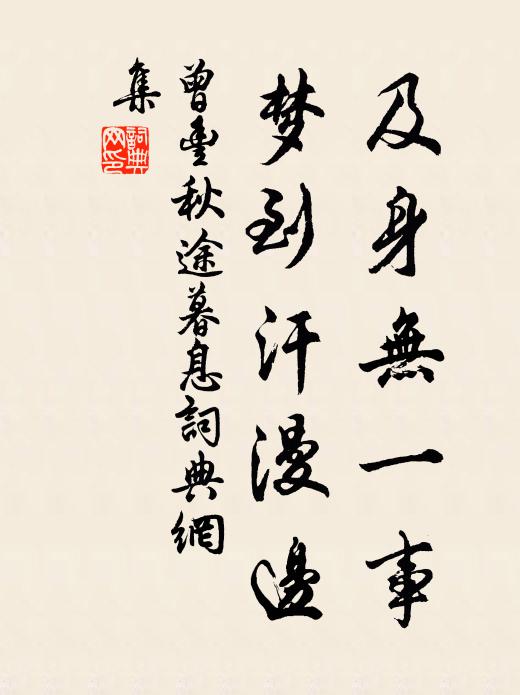 及身無一事
梦到汗漫邊
曾豐秋途暮息詞典網
集
詞典
网印